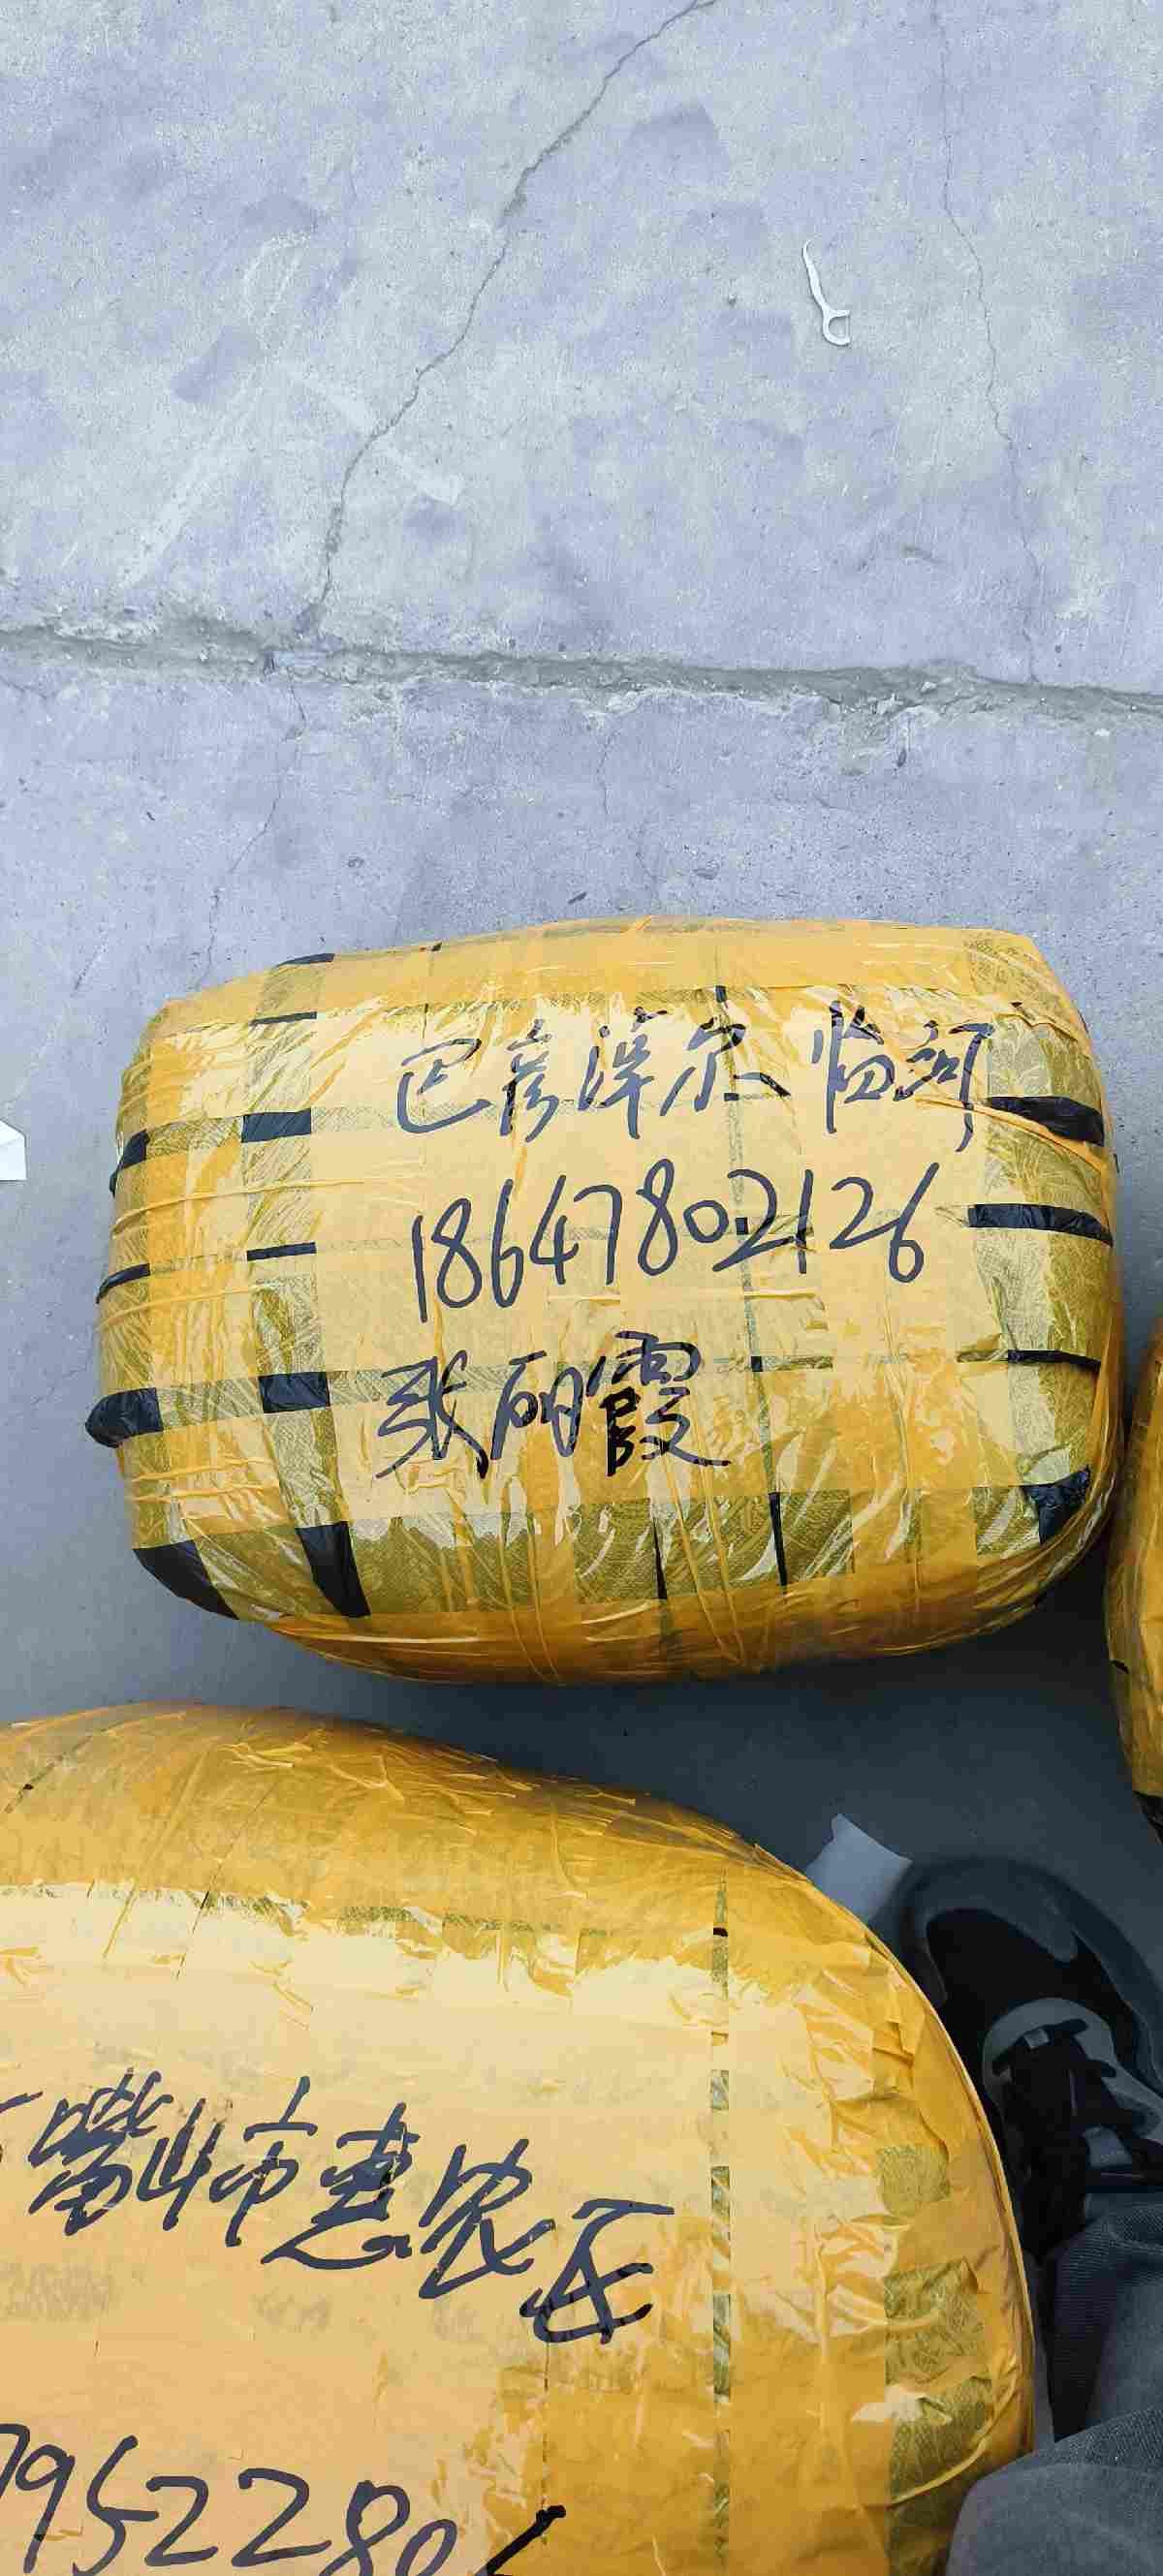 巴彦淖尔 临河
18647802126
张丽霞
嘴山市惠农区
7952280